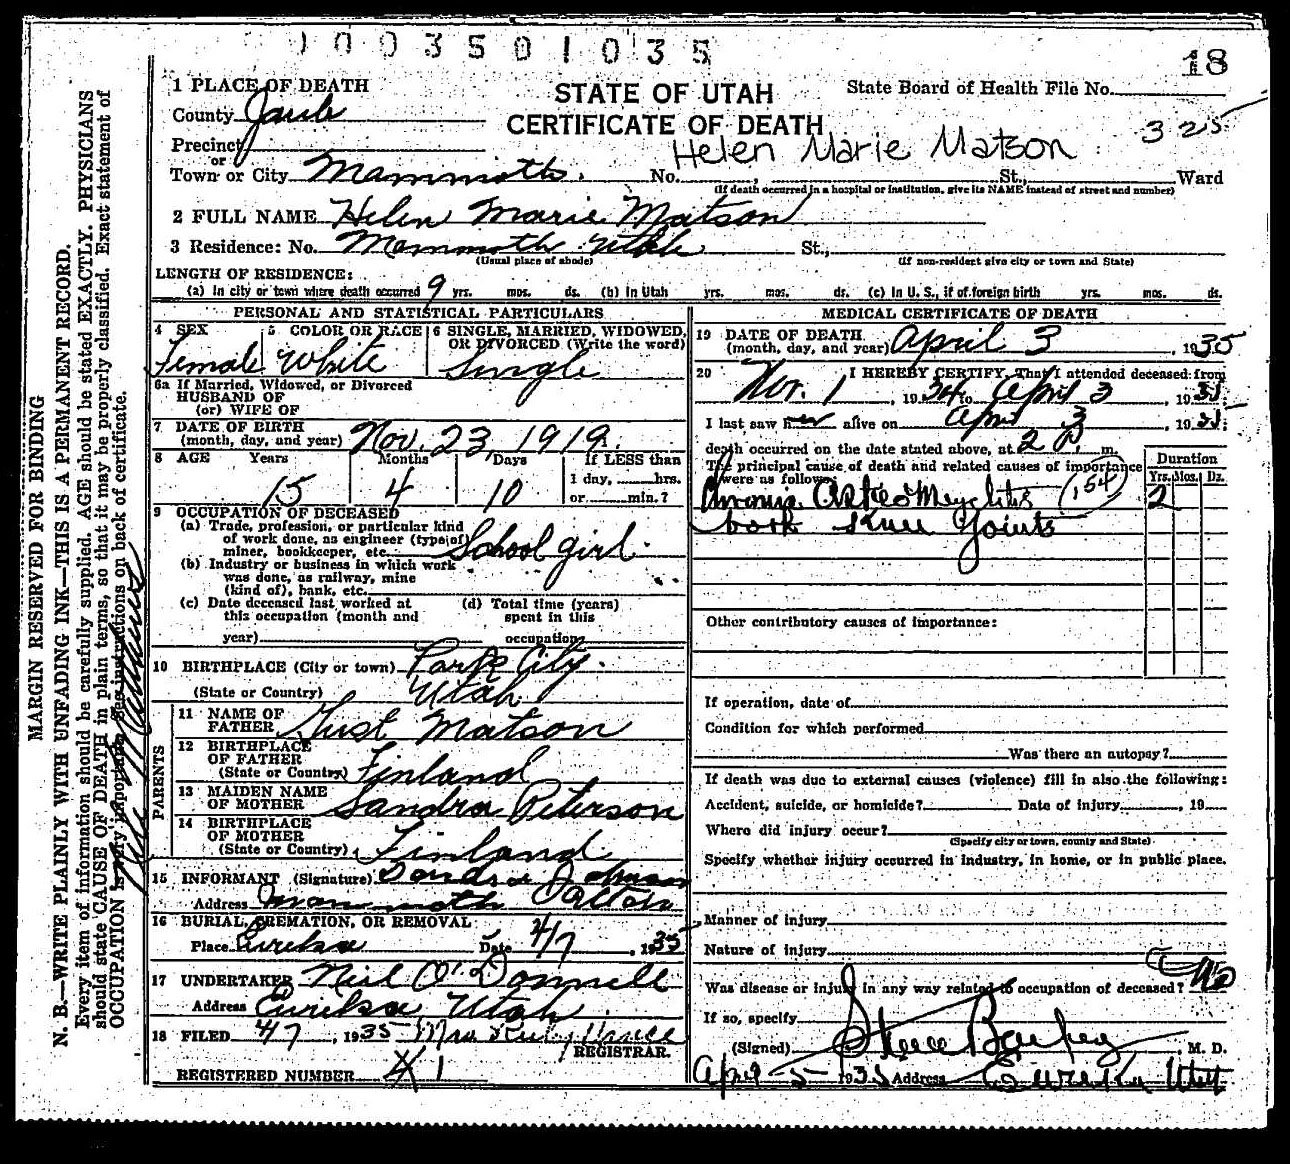 1003501035
18
1 PLACE OF DEATH
STATE OF UTAH
State Board of Health File No.
County Juab
CERTIFICATE OF DEATH
325
Precinct
Helen Marie Matson
or
Town or City Mammoth. No. , St., Ward
(If death occurred in a hospital or institution, give its NAME instead of street and number)
2 FULL NAME Helen Marie Matson
3 Residence: No. Mammoth Utah St.,
(Usual place of abode) (If non-resident give city or town and State)
LENGTH OF RESIDENCE:
(a) In city or town where death occurred 9 yrs. mos. ds. (b) In Utah yrs. mos. ds. (c) In U. S., if of foreign birth yrs. mos. ds.
PERSONAL AND STATISTICAL PARTICULARS
4 SEX 5 COLOR OR RACE 6 SINGLE, MARRIED, WIDOWED, OR DIVORCED (Write the word)
Female White Single
6a If Married, Widowed, or Divorced
HUSBAND OF
(or) WIFE OF
7 DATE OF BIRTH
(month, day, and year) Nov. 23, 1919.
8 AGE Years Months Days If LESS than
1 day, hrs.
15 4 10 or min.?
9 OCCUPATION OF DECEASED
(a) Trade, profession, or particular kind
of work done, as engineer (type of)
miner, bookkeeper, etc. School girl.
(b) Industry or business in which work
was done, as railway, mine
(kind of), bank, etc.
(c) Date deceased last worked at
this occupation (month and
year)
(d) Total time (years)
spent in this
occupation
10 BIRTHPLACE (City or town) Park City.
(State or Country) Utah
PARENTS
11 NAME OF
FATHER Gust Matson
12 BIRTHPLACE
OF FATHER
(State or Country) Finland
13 MAIDEN NAME
OF MOTHER Sandra Peterson
14 BIRTHPLACE
OF MOTHER
(State or Country) Finland
15 INFORMANT (Signature) Sandra Johnson
Address Mammoth
16 BURIAL, CREMATION, OR REMOVAL
Place Eureka Date 4/7, 1935
17 UNDERTAKER Neil O'Donnell
Address Eureka, Utah
18 FILED 4/7, 1935 Mrs. Ruby
REGISTRAR.
REGISTERED NUMBER 1
MEDICAL CERTIFICATE OF DEATH
19 DATE OF DEATH
(month, day, and year) April 3, 1935
20 I HEREBY CERTIFY, That I attended deceased from
Nov. 1, 1934 to April 3, 1935
I last saw her alive on April 3, 1935;
death occurred on the date stated above, at 2 P. m.
The principal cause of death and related causes of importance
were as follows:
Duration
Yrs. Mos. Ds.
Osteo Myelitis (154) 2
both Knee Joints
Other contributory causes of importance:
If operation, date of
Condition for which performed
Was there an autopsy?
If death was due to external causes (violence) fill in also the following:
Accident, suicide, or homicide? Date of injury , 19
Where did injury occur?
(Specify city or town, county and State)
Specify whether injury occurred in industry, in home, or in public place.
Manner of injury
Nature of injury
Was disease or injury in any way related to occupation of deceased? No
If so, specify
(Signed) Steele Bailey, M. D.
April 5 1935 Address Eureka Utah
MARGIN RESERVED FOR BINDING
N. B.—WRITE PLAINLY WITH UNFADING INK—THIS IS A PERMANENT RECORD.
Every item of information should be carefully supplied. AGE should be stated EXACTLY. PHYSICIANS
should state CAUSE OF DEATH in plain terms, so that it may be properly classified. Exact statement of
OCCUPATION is very important. See instructions on back of certificate.